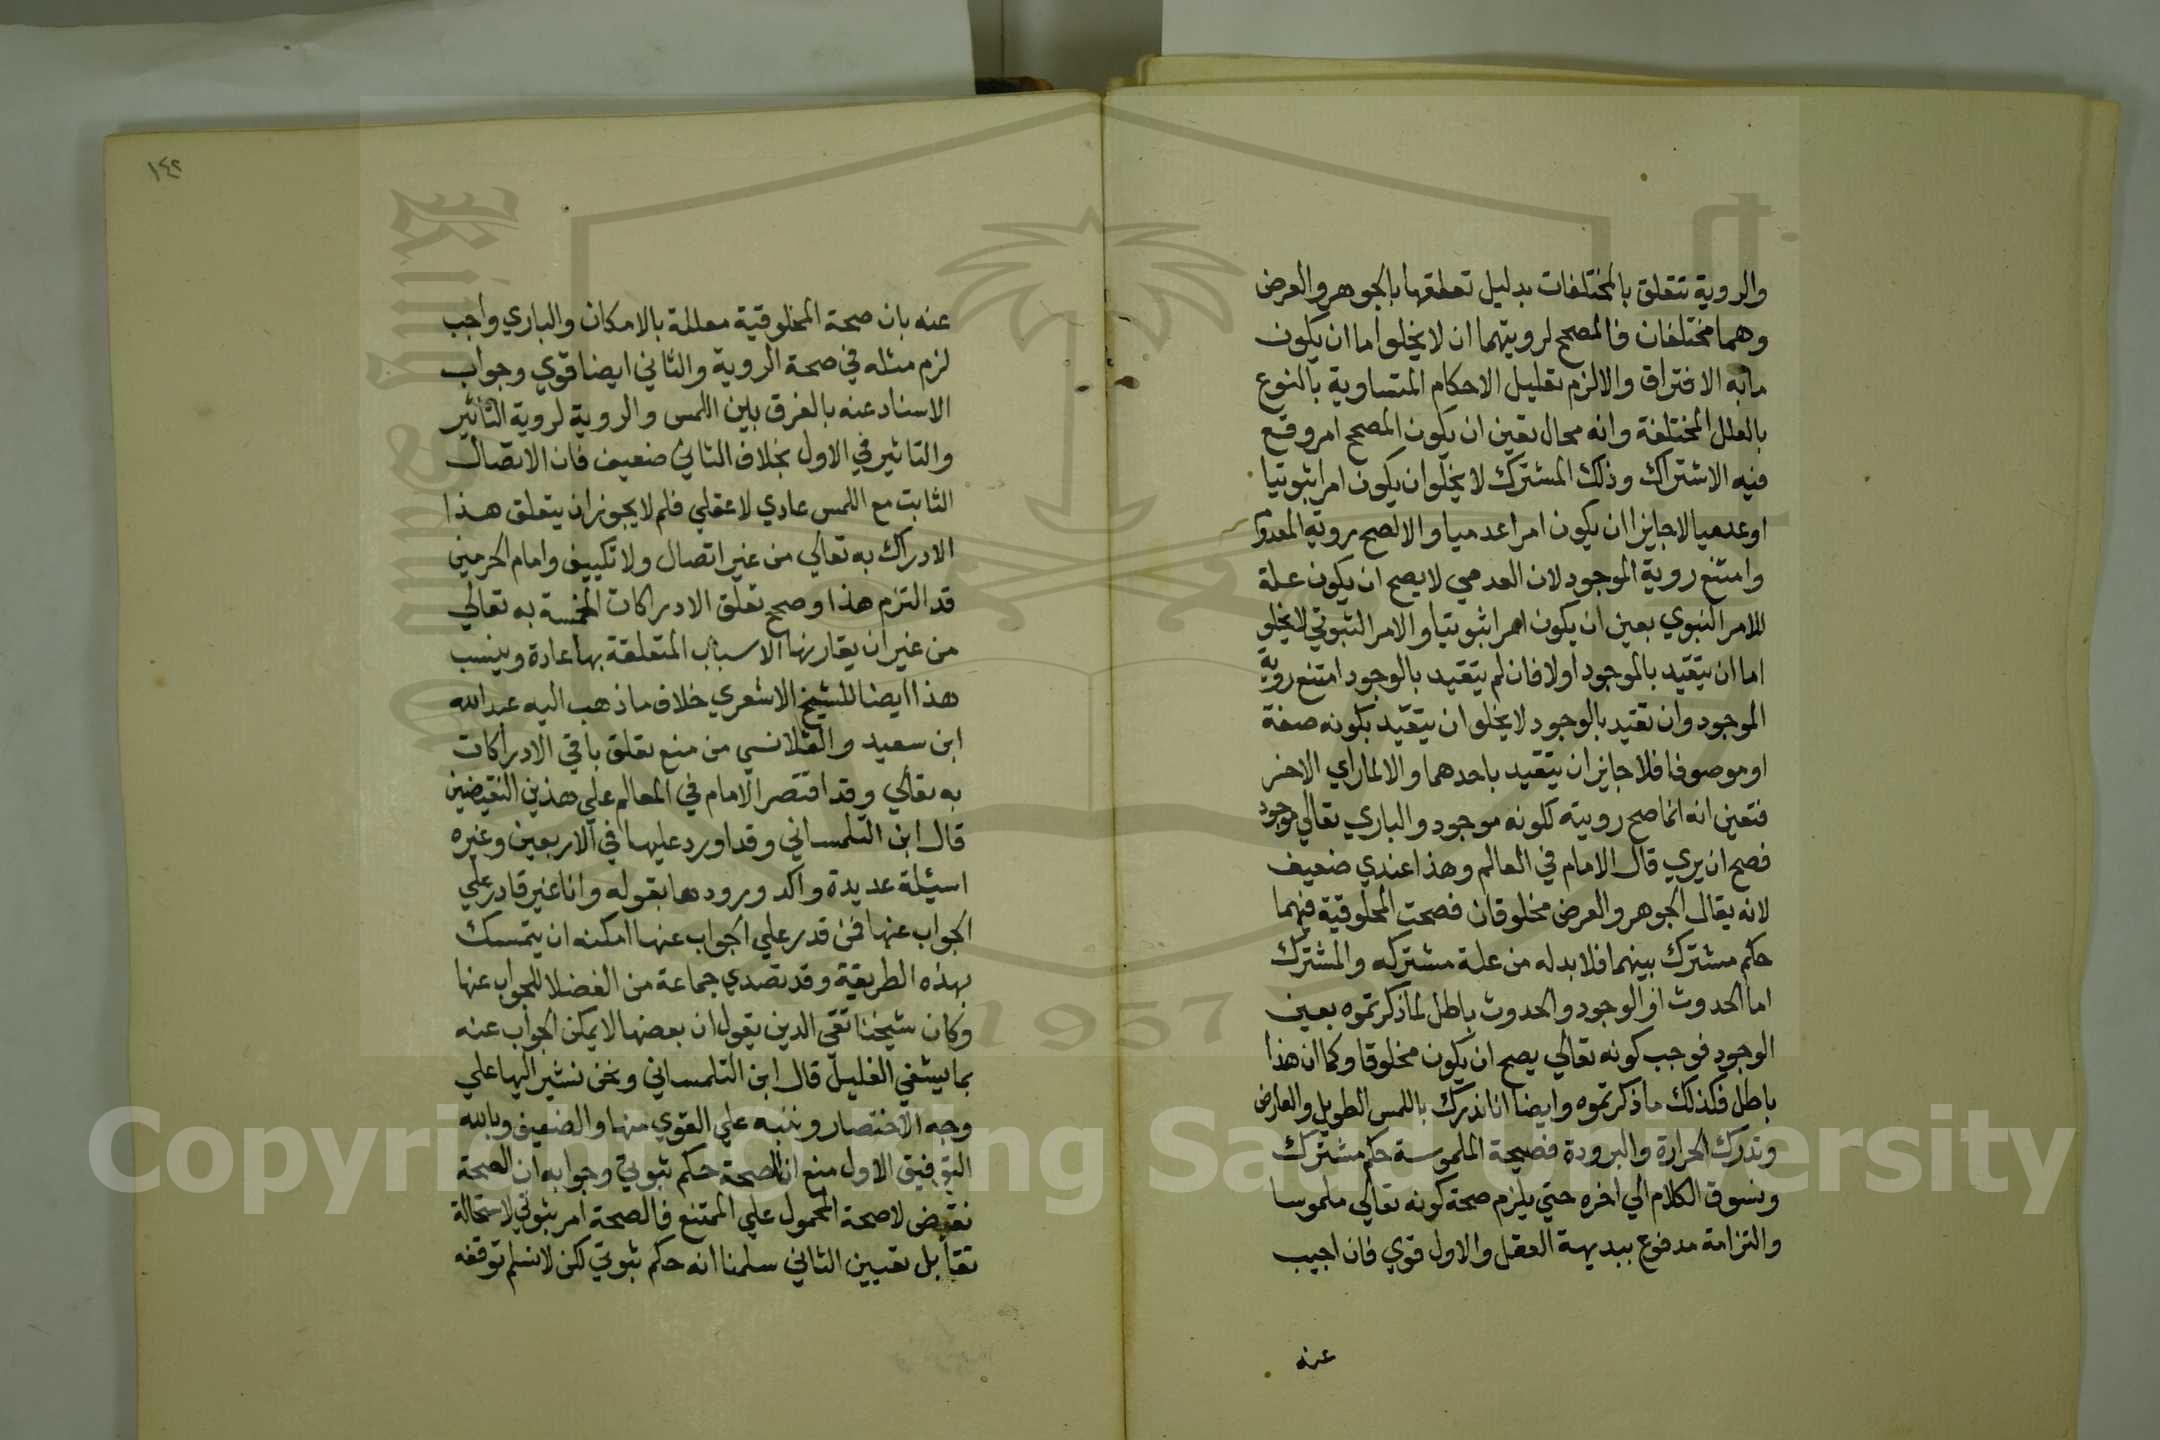 والروية تتعلق بالمختلفات بدليل تعلقها بالجوهر والعرض
وهما مختلفان فالمصحح لرويتهما ان لا يخلوا اما ان يكون
مابه الافتراق والالزم تعليل الاحكام المتساوية بالنوع
بالعلل المختلفة وانه محال تعين ان يكون المصحح امر وقع
فيه الاشتراك وذلك المشترك لا يخلوان يكون امرا ثبوتيا
او عدميا لا جايزا ان يكون امرا عدميا والا لصح روية المعدوم
وامتنع روية الموجود لان العدمي لا يصح ان يكون علة
للامر الثبوي بعين ان يكون امرا ثبوتيا والامر الثبوتي لا يخلو
اما ان يتقيد بالموجود اولا فان لم يتقيد بالوجود امتنع روية
الموجود وان تقيد بالوجود لا يخلو ان يتقيد بكونه صفة
او موصوفا فلا جايز ان يتقيد باحدهما والا لما راي الاخر
فتعين انه انما صح رويته لكونه موجود والباري تعالي موجود
فصح ان يري قال الامام في العالم وهذا عندي ضعيف
لانه يقال الجوهر والعرض مخلوقان فصحت المخلوقية فيهما
حكم مشترك بينهما فلا بد له من علة مشتركه والمشترك
اما الحدوث او الوجود والحدوث باطل لما ذكرتموه بعين
الوجود فوجب كونه تعالي يصح ان يكون مخلوقا وكما ان هذا
باطل فكذلك ما ذكرتموه وايضا انا ندرك باللمس الطويل والعارض
وندرك الحرارة والبرودة فصحة الملموسة حكم مشترك
ونسوق الكلام الي اخره حتي يلزم صحة كونه تعالي ملموسا
والتزامة مدفوع ببديهة العقل والاول قوي فان اجيب
عنه
١٤٢
عنه بان صحة المخلوقية معللة بالامكان والباري واجب
لزم مثله في صحة الروية والثاني ايضا قوي وجواب
الاسناد عنه بالفرق بين اللمس والروية لروية التأثير
والتاثير في الاول بخلاف الثاني ضعيف فان الاتصال
الثابت مع اللمس عادي لا عقلي فلم لا يجوز ان يتعلق هذا
الادراك به تعالي من غير اتصال ولا تكييف وامام الحرمين
قد التزم هذا وصحح تعلق الادراكات الخمسة به تعالي
من غير ان يقارنها الاسباب المتعلقة بها عادة وينسب
هذا ايضا للشيخ الاشعري خلاف ما ذهب اليه عبد الله
ابن سعيد والقلانسي من منع تعلق باقي الادراكات
به تعالي وقد اقتصر الامام في المعالم علي هذين النقيضين
قال ابن التلمساني وقد اورد عليها في الاربعين وغيره
اسيئلة عديدة واكد ورودها بقوله وانا غير قادر علي
الجواب عنها فمن قدر علي الجواب عنها امكنه ان يتمسك
بهذه الطريقة وقد تصدي جماعة من الفضلا للجواب عنها
وكان شيخنا تقي الدين يقول ان بعضها لا يمكن الجواب عنه
بما يشفي الغليل قال ابن التلمساني ونحن نشير اليها علي
وجه الاختصار وننبه علي القوي منها والضعيف وبالله
التوفيق الاول منع ان الصحة حكم ثبوتي وجوابه ان الصحة
نقيض لا صحة المحمول علي الممتنع فالصحة امر ثبوتي لاستحالة
تقابل نفيين الثاني سلمنا انه حكم ثبوتي لكن لا نسلم توقفه
Copyright © King Saud University
1957